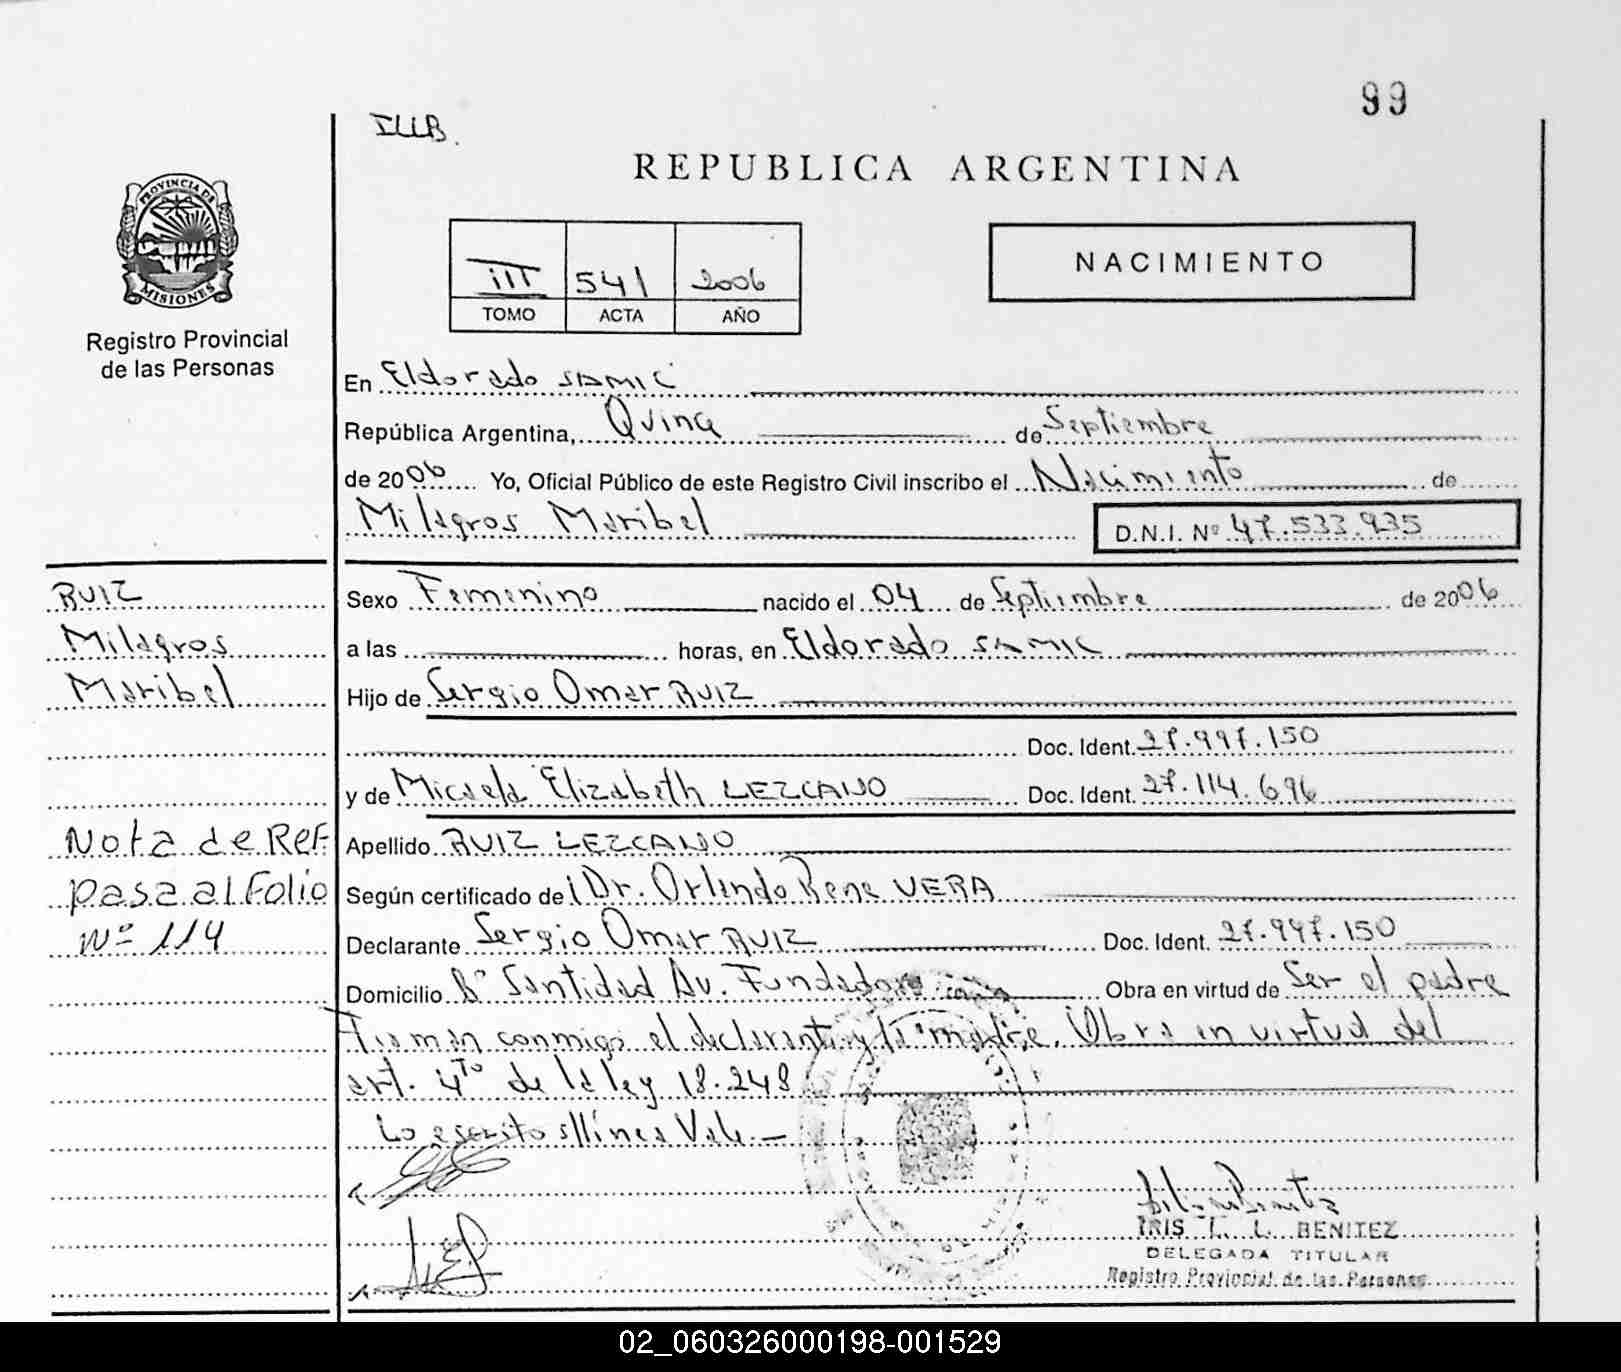 99
ILLB.
REPUBLICA ARGENTINA
PROVINCIA DE
MISIONES
Registro Provincial
de las Personas
III 541 2006
TOMO ACTA AÑO
NACIMIENTO
En Eldorado SAMIC
República Argentina, Quince de Septiembre
de 2006 Yo, Oficial Público de este Registro Civil inscribo el Nacimiento de
Milagros Maribel D.N.I. Nº 47.533.935
RUIZ
Milagros
Maribel
Nota de Ref
pasa al Folio
Nº 114
Sexo Femenino nacido el 04 de Septiembre de 2006
a las horas, en Eldorado SAMIC
Hijo de Sergio Omar RUIZ
Doc. Ident. 27.997.150
y de Micaela Elizabeth LEZCANO Doc. Ident. 27.114.696
Apellido RUIZ LEZCANO
Según certificado del Dr. Orlando Rene VERA
Declarante Sergio Omar RUIZ Doc. Ident. 27.997.150
Domicilio Bº Santidad Av. Fundadores Obra en virtud de Ser el padre
Firman conmigo el declarante y la madre. Obra en virtud del
art. 4to de la ley 18.248
Lo escrito s/línea Vale.
IRIS L. L. BENITEZ
DELEGADA TITULAR
Registro Provincial de las Personas
02_060326000198-001529